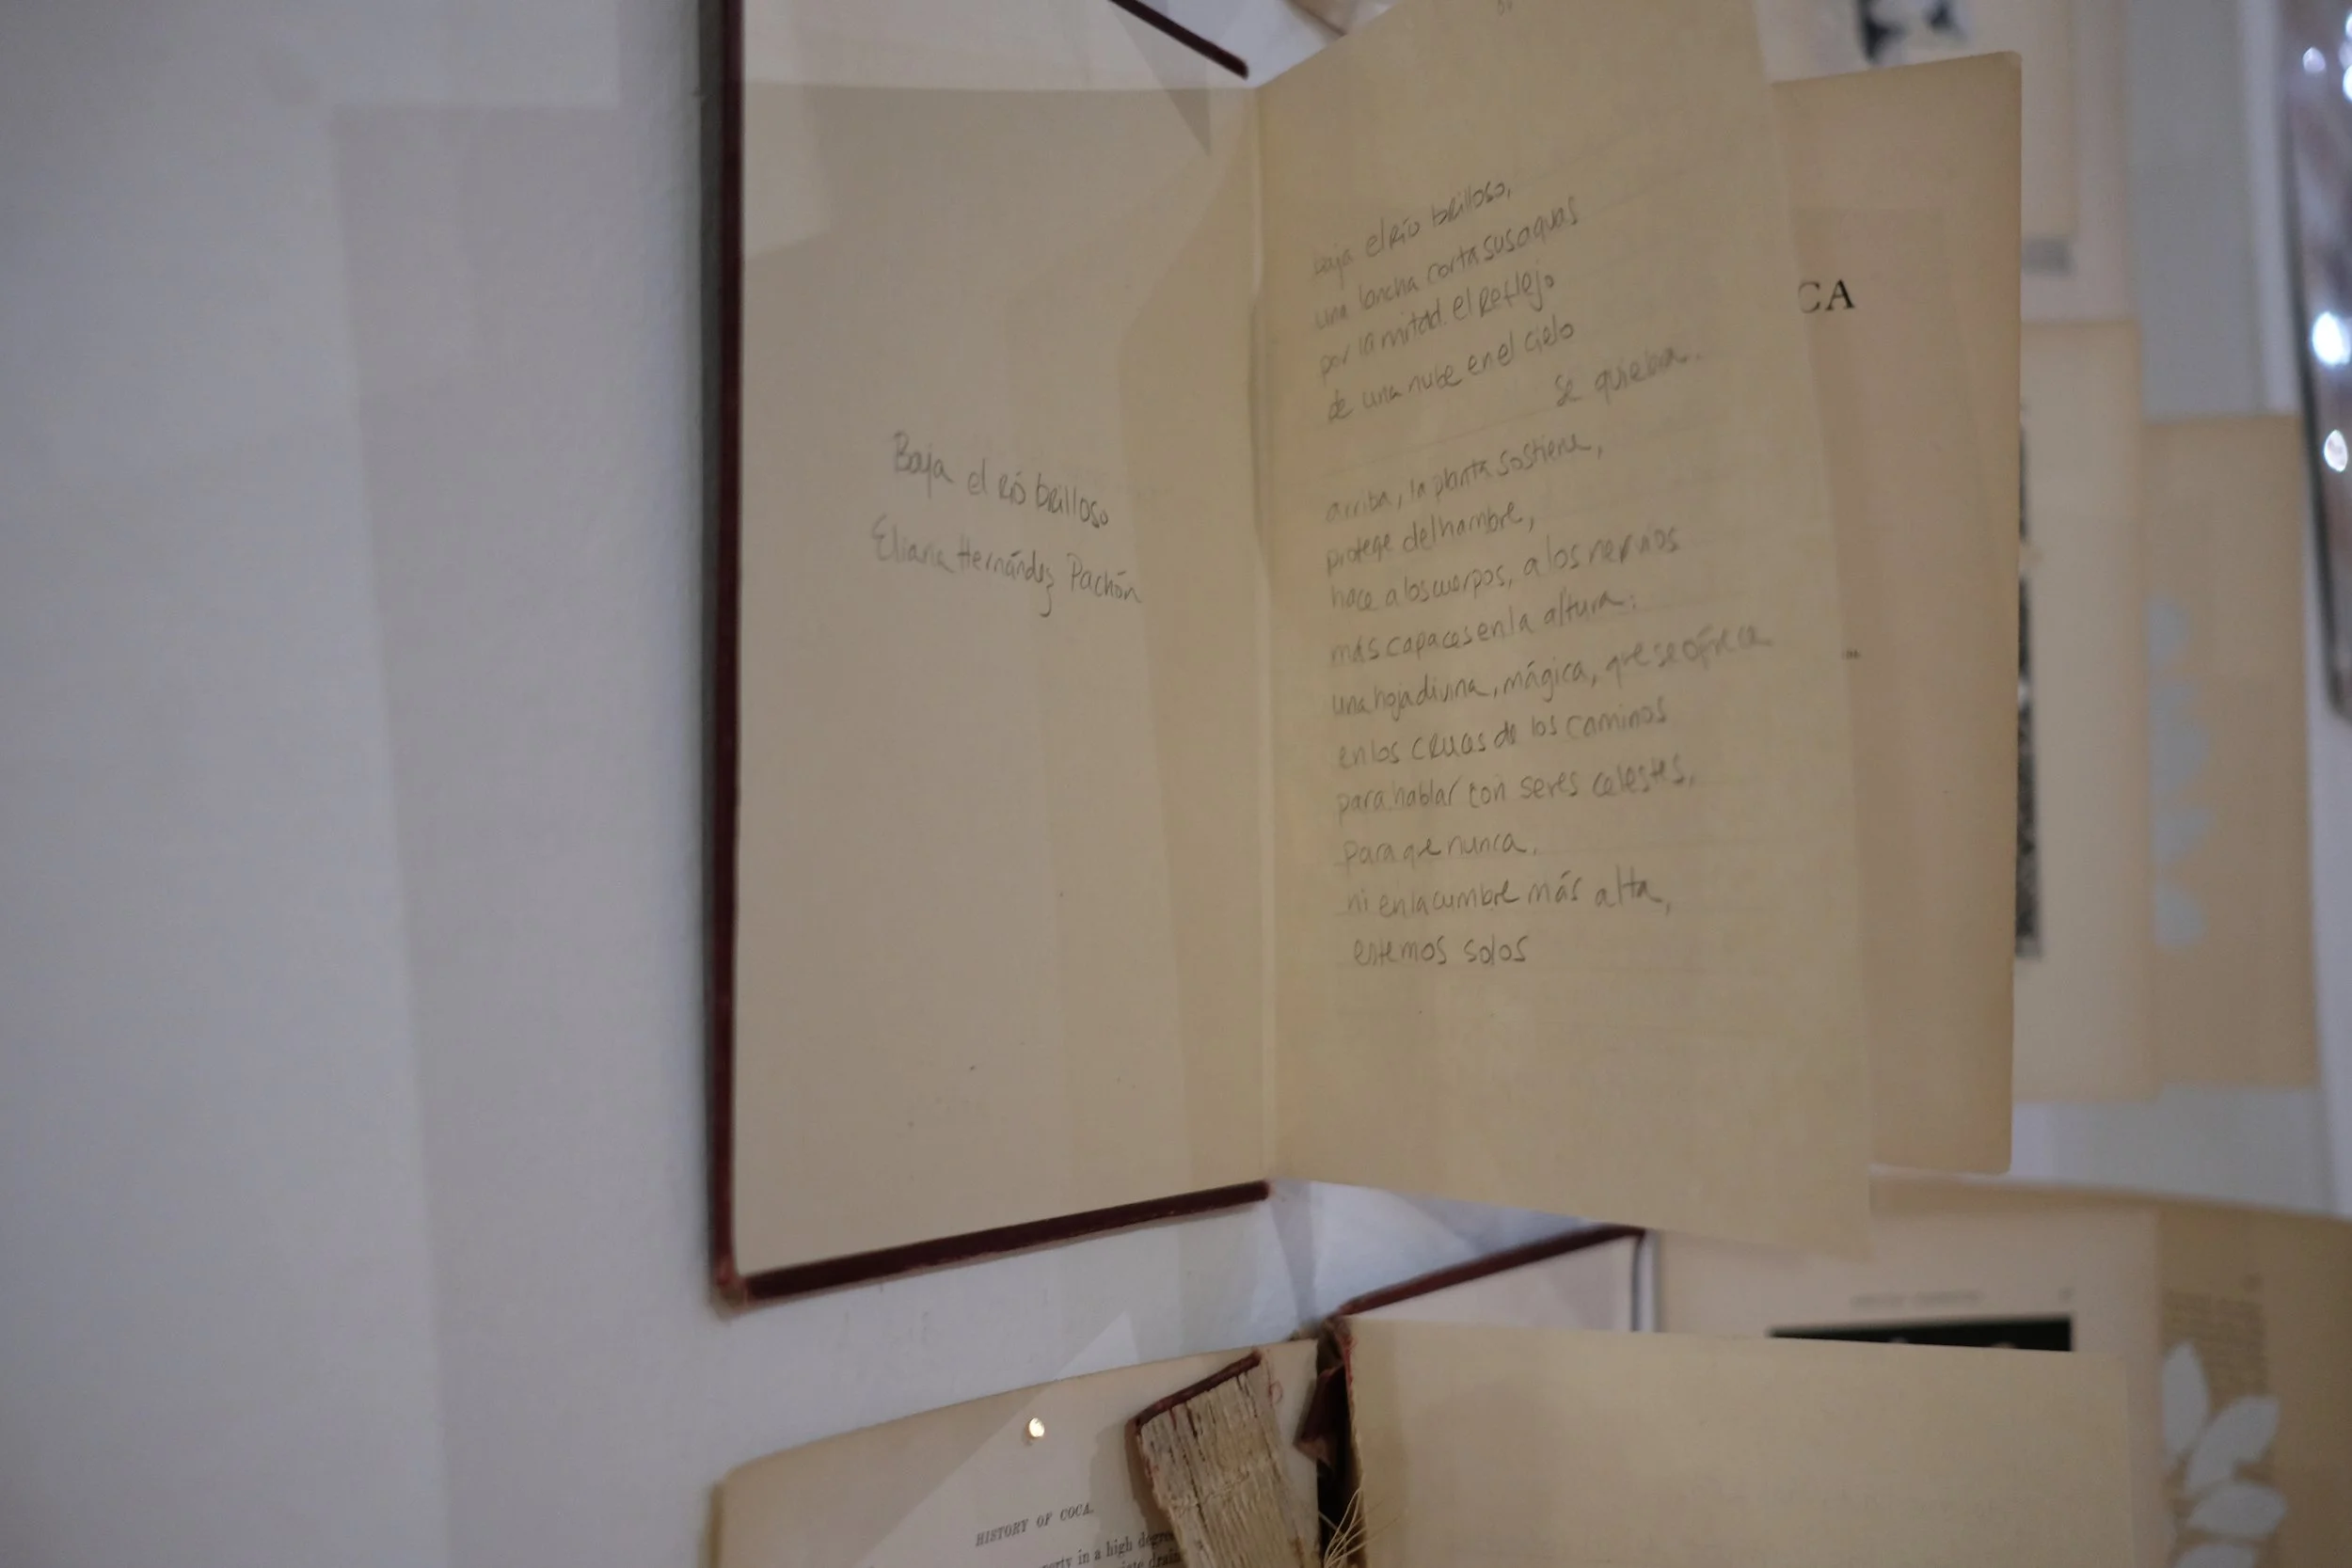 Baja el río brilloso
Eliana Hernández Pachón
baja el río brilloso,
una lancha corta sus aguas
por la mitad. el reflejo
de una nube en el cielo
se quiebra.
arriba, la planta sostiene,
protege del hambre,
hace a los cuerpos, a los nervios
más capaces en la altura:
una hoja divina, mágica, que se ofrece
en los cruces de los caminos
para hablar con seres celestes,
para que nunca,
ni en la cumbre más alta,
estemos solos
CA
HISTORY OF COCA.
in a high degree